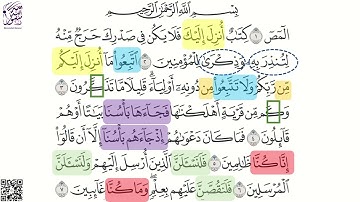 بِسْمِ اللَّهِ الرَّحْمَٰنِ الرَّحِيمِ
الٓمٓصٓ ١ كِتَٰبٌ أُنزِلَ إِلَيْكَ فَلَا يَكُن فِي صَدْرِكَ حَرَجٌ مِّنْهُ
لِتُنذِرَ بِهِۦ وَذِكْرَىٰ لِلْمُؤْمِنِينَ ٢ ٱتَّبِعُوا۟ مَآ أُنزِلَ إِلَيْكُم
مِّن رَّبِّكُمْ وَلَا تَتَّبِعُوا۟ مِن دُونِهِۦٓ أَوْلِيَآءَ ۗ قَلِيلًا مَّا تَذَكَّرُونَ ٣
وَكَم مِّن قَرْيَةٍ أَهْلَكْنَٰهَا فَجَآءَهَا بَأْسُنَا بَيَٰتًا أَوْ هُمْ
قَآئِلُونَ ٤ فَمَا كَانَ دَعْوَىٰهُمْ إِذْ جَآءَهُم بَأْسُنَآ إِلَّآ أَن قَالُوٓا۟
إِنَّا كُنَّا ظَٰلِمِينَ ٥ فَلَنَسْـَٔلَنَّ ٱلَّذِينَ أُرْسِلَ إِلَيْهِمْ وَلَنَسْـَٔلَنَّ
ٱلْمُرْسَلِينَ ٦ فَلَنَقُصَّنَّ عَلَيْهِم بِعِلْمٍ ۖ وَمَا كُنَّا غَآئِبِينَ ٧